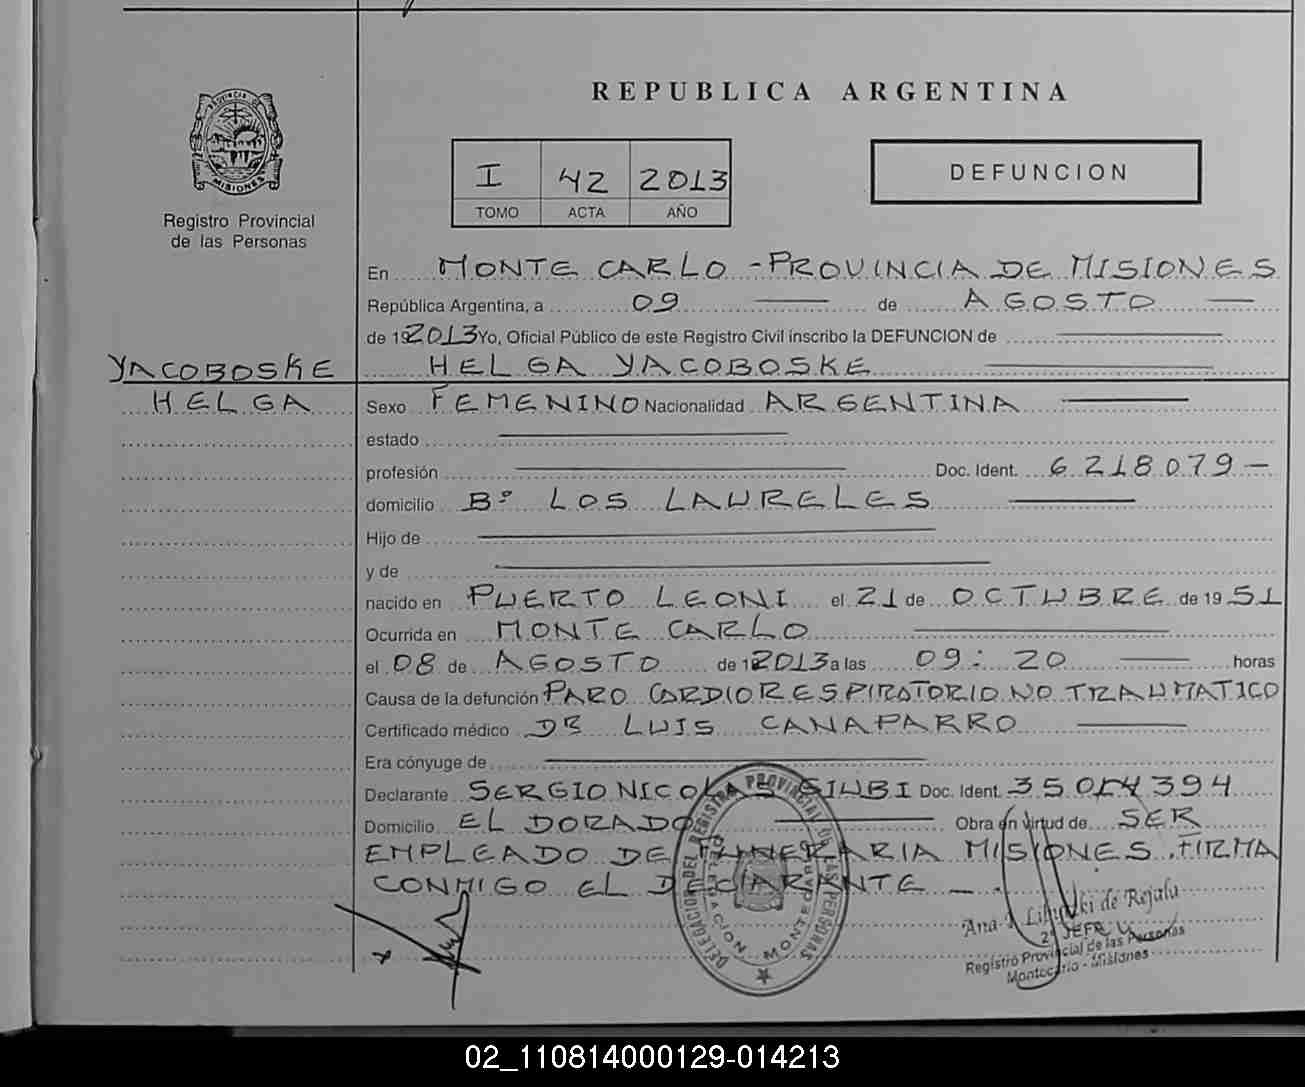 REPUBLICA ARGENTINA
PROVINCIA DE
MISIONES
Registro Provincial
de las Personas
I 42 2013
TOMO ACTA AÑO
DEFUNCION
En MONTE CARLO - PROVINCIA DE MISIONES
República Argentina, a 09 de AGOSTO
de 192013 Yo, Oficial Público de este Registro Civil inscribo la DEFUNCION de
YACOBOSKE
HELGA
HELGA YACOBOSKE
Sexo FEMENINO Nacionalidad ARGENTINA
estado
profesión Doc. Ident. 6218079-
domicilio Bº LOS LAURELES
Hijo de
y de
nacido en PUERTO LEONI el 21 de OCTUBRE de 1951
Ocurrida en MONTE CARLO
el 08 de AGOSTO de 192013 a las 09:20 horas
Causa de la defunción PARO CARDIORESPIRATORIO NO TRAUMATICO
Certificado médico DR LUIS CANAPARRO
Era cónyuge de
Declarante SERGIO NICOLAS GIUBI Doc. Ident. 35014394
Domicilio EL DORADO Obra en virtud de SER
EMPLEADO DE FUNERARIA MISIONES. FIRMA
CONMIGO EL DECLARANTE -.
DELEGACION DEL REGISTRO PROVINCIAL DE LAS PERSONAS
DELEGACION MONTECARLO
Ana de Rejala
2º JEFE
Registro Provincial de las Personas
Montecarlo - Misiones
02_110814000129-014213